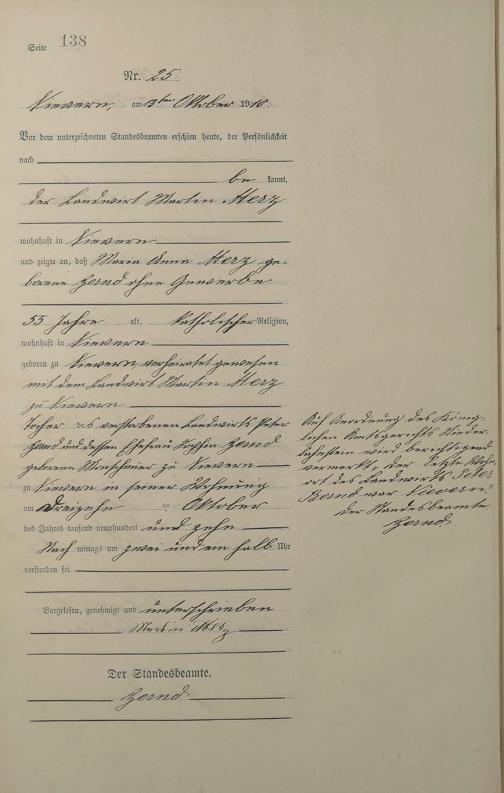 Seite 138
Nr. 25
Nievern, am 13ten Oktober 1910.
Vor dem unterzeichneten Standesbeamten erschien heute, der Persönlichkeit
nach
be kannt,
der Landwirt Martin Herz
wohnhaft in Nievern
und zeigte an, daß Maria Anna Herz ge-
borene Zernd ohne Gewerbe
55 Jahre alt, katholischer Religion,
wohnhaft in Nievern
geboren zu Nievern, verheiratet gewesen
mit dem Landwirt Martin Herz
zu Nievern
Tochter des verstorbenen Landwirts Peter
Zernd und dessen Ehefrau Sophia Zernd
geborene zu Nievern
zu Nievern in seiner Wohnung
am dreizehn Oktober
des Jahres tausend neunhundert und zehn
Nach mittags um zwei und ein halb Uhr
verstorben sei.
Vorgelesen, genehmigt und unterschrieben
Martin Herz
Der Standesbeamte.
Zernd
Auf Anordnung des König-
lichen Amtsgerichts Nieder-
lahnstein wird berichtigend
vermerkt, "der letzte Wohn-
ort des Landwirts Peter
war Nievern."
Der Standesbeamte
Zernd